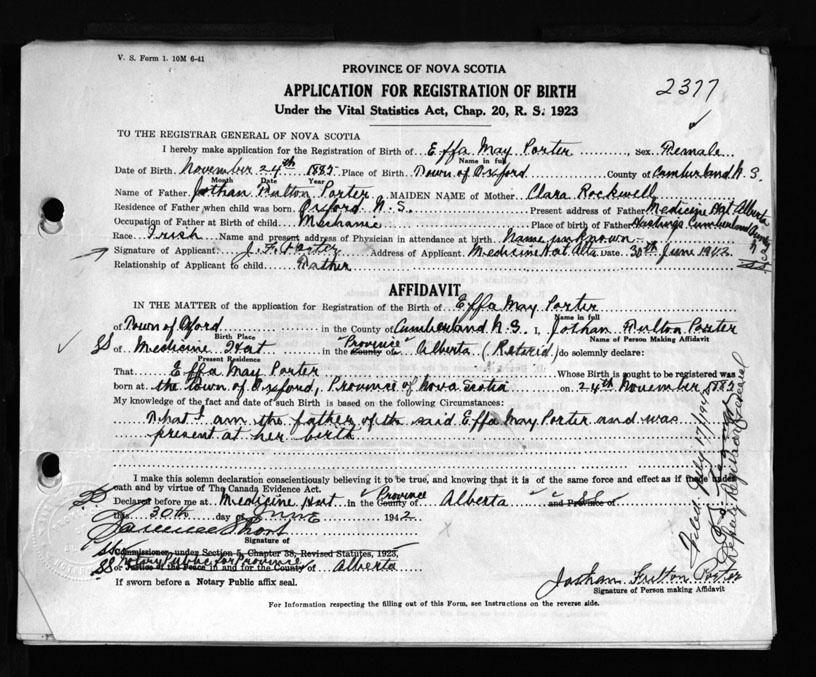 V. S. Form 1. 10M 6-41
PROVINCE OF NOVA SCOTIA
APPLICATION FOR REGISTRATION OF BIRTH
2377
Under the Vital Statistics Act, Chap. 20, R. S. 1923
TO THE REGISTRAR GENERAL OF NOVA SCOTIA
I hereby make application for the Registration of Birth of Effa May Porter, Sex Female
Name in full
Date of Birth November 24th 1885 Place of Birth Town of Oxford County of Cumberland N.S.
Month Date Year
Name of Father Jothan Fulton Porter MAIDEN NAME of Mother Clara Rockwell
Residence of Father when child was born Oxford N.S. Present address of Father Medicine Hat Alberta
Occupation of Father at Birth of child Mechanic Place of birth of Father Hastings Cumberland County N.S.
Race Irish Name and present address of Physician in attendance at birth Name unknown
Signature of Applicant J. F. Porter Address of Applicant Medicine Hat Alta Date 30th June 1942
Relationship of Applicant to child Father
AFFIDAVIT
IN THE MATTER of the application for Registration of the Birth of Effa May Porter
Name in full
of Town of Oxford in the County of Cumberland N.S. I, Jothan Fulton Porter
Birth Place Name of Person Making Affidavit
SS of Medicine Hat in the County of Province Alberta (Retired) do solemnly declare:
Present Residence
That Effa May Porter Whose Birth is sought to be registered was
born at the town of Oxford, Province of Nova Scotia on 24th November, 1885
My knowledge of the fact and date of such Birth is based on the following Circumstances:
That I am the father of the said Effa May Porter and was
present at her birth
I make this solemn declaration conscientiously believing it to be true, and knowing that it is of the same force and effect as if made under
oath and by virtue of The Canada Evidence Act.
Declared before me at Medicine Hat in the County of Province Alberta and Province
this 30th day of June 1942
Signature of
Commissioner, under Section 9, Chapter 38, Revised Statutes, 1923,
Notary Public for Province
or Justice of the Peace in and for the County of Alberta
If sworn before a Notary Public affix seal.
Jothan Fulton Porter
Signature of Person making Affidavit
For Information respecting the filling out of this Form, see Instructions on the reverse side.
Filed July 17/1942
Deputy Registrar General